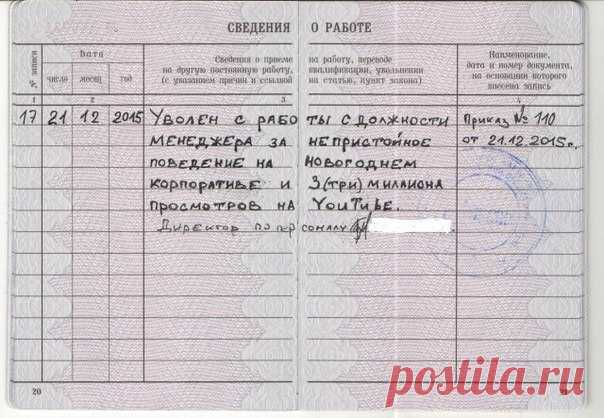 СВЕДЕНИЯ О РАБОТЕ
№ записи
Дата
число
месяц
год
Сведения о приеме на работу, переводе
на другую постоянную работу, квалификации, увольнении
(с указанием причин и ссылкой на статью, пункт закона)
Наименование,
дата и номер документа,
на основании которого
внесена запись
1 2 3 4
17 21 12 2015 УВОЛЕН С РАБОТЫ С ДОЛЖНОСТИ Приказ № 110
МЕНЕДЖЕРА ЗА НЕПРИСТОЙНОЕ от 21.12.2015г.
ПОВЕДЕНИЕ НА НОВОГОДНЕМ
КОРПОРАТИВЕ И 3 (три) МИЛЛИОНА
ПРОСМОТРОВ НА YOUTUBE.
Директор по персоналу
20
postila.ru